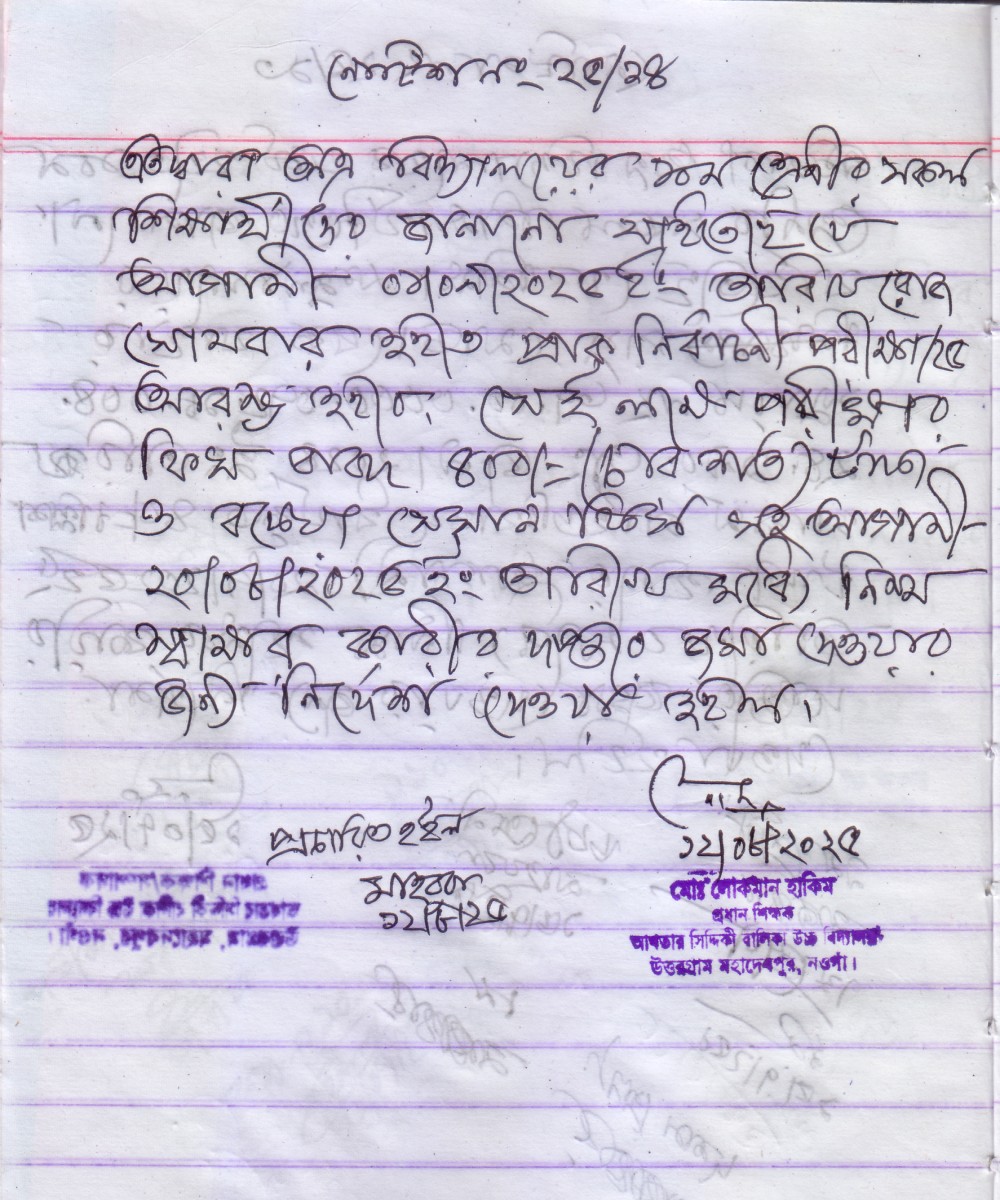 নোটিশ নং ২৫/২৪
এতদ্বারা অত্র বিদ্যালয়ের ১০ম শ্রেণীর সকল
শিক্ষার্থীদের জানানো যাইতেছে যে
আগামী ০১/০৯/২০২৫ইং তারিখ রোজ
সোমবার হইতে প্রাক নির্বাচনী পরীক্ষা/২৫
আরম্ভ হইবে, সেই লক্ষে পরীক্ষার
ফিস বাবদ ৪০০/= (চার শত) টাকা
ও বকেয়া সেসান ফিস সহ আগামী
২০/০৮/২০২৫ইং তারিখ মধ্যে নিম্ন
স্বাক্ষর কারীর দপ্তরে জমা দেওয়ার
জন্য নির্দেশ দেওয়া হইল।
প্রচারিত হইল
১২/০৮/২০২৫
১২/৮/২৫
মোঃ লোকমান হাকিম
প্রধান শিক্ষক
আখতার সিদ্দিকী বালিকা উচ্চ বিদ্যালয়
উত্তরগ্রাম মহাদেবপুর, নওগাঁ।